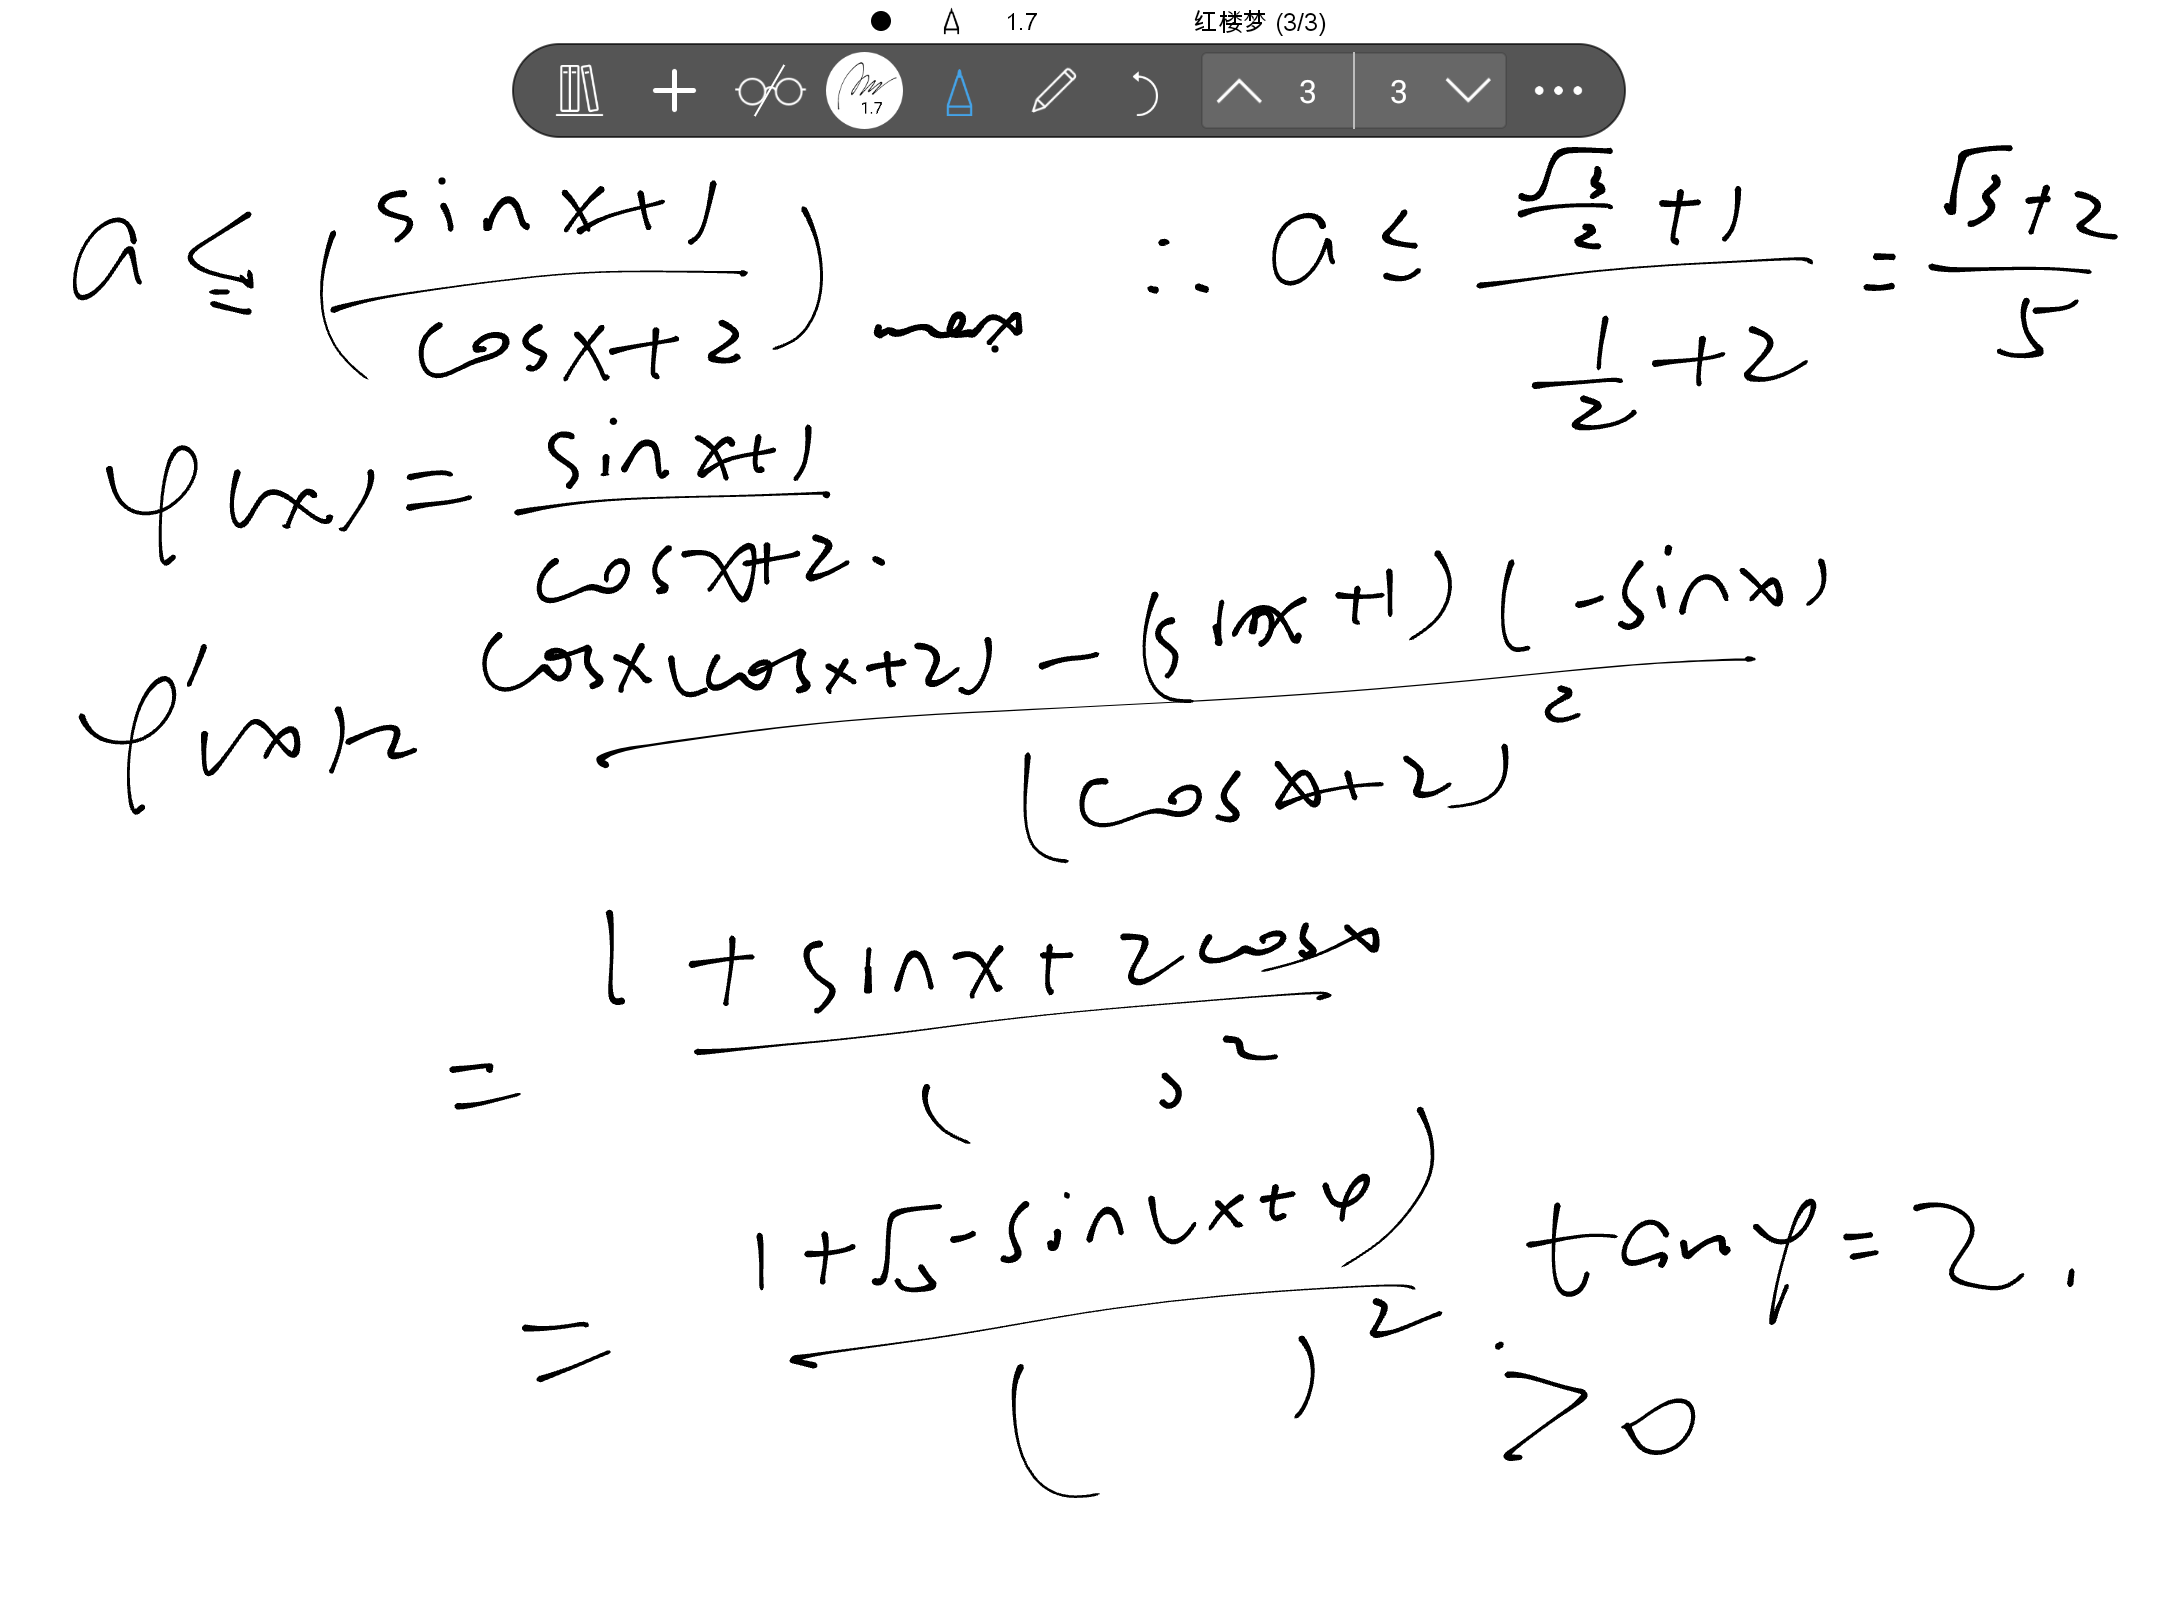 1.7 红楼梦 (3/3)
1.7 3 3
a ≤ (sinx+1 / cosx+2) max ∴ a ≤ (√3/2 + 1) / (1/2 + 2) = (√3+2) / 5
φ(x) = (sinx+1) / (cosx+2).
φ'(x) = (cosx(cosx+2) − (sinx+1)(-sinx)) / (cosx+2)²
= (1 + sinx + 2cosx) / ( )²
= (1+√5 sin(x+φ)) / ( )² tanφ = 2.
> 0